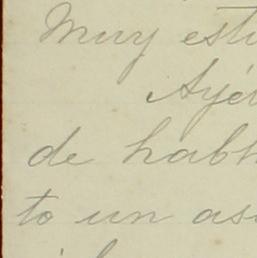 Muy esti
Ayer
de habl
to un as